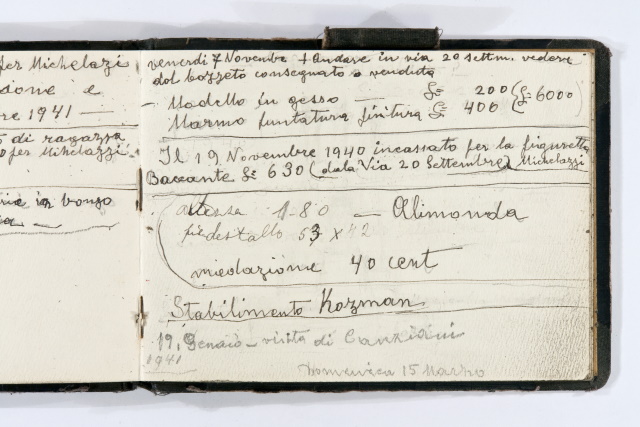 per Michelazzi
done e
re 1941 —
di ragazza
per Michelazzi
in bonzo
venerdi 7 Novembre + Andare in via 20 settm. vedere
dol bozzeto consegnato o venduto
— Modello in gesso — £ 200 (£ 6000
Marmo puntatura finitura £ 400
Il 19 Novembre 1940 incassato per la figuretta
Baccante £ 630 (dala Via 20 Settembre) Michelazzi
altessa 1-80 — Alimonda
piedestallo 53 x 42
miedazione 40 cent
Stabilimento Kozman
19. Genaio — visita di Canziani
1941
Domenica 15 Marzo